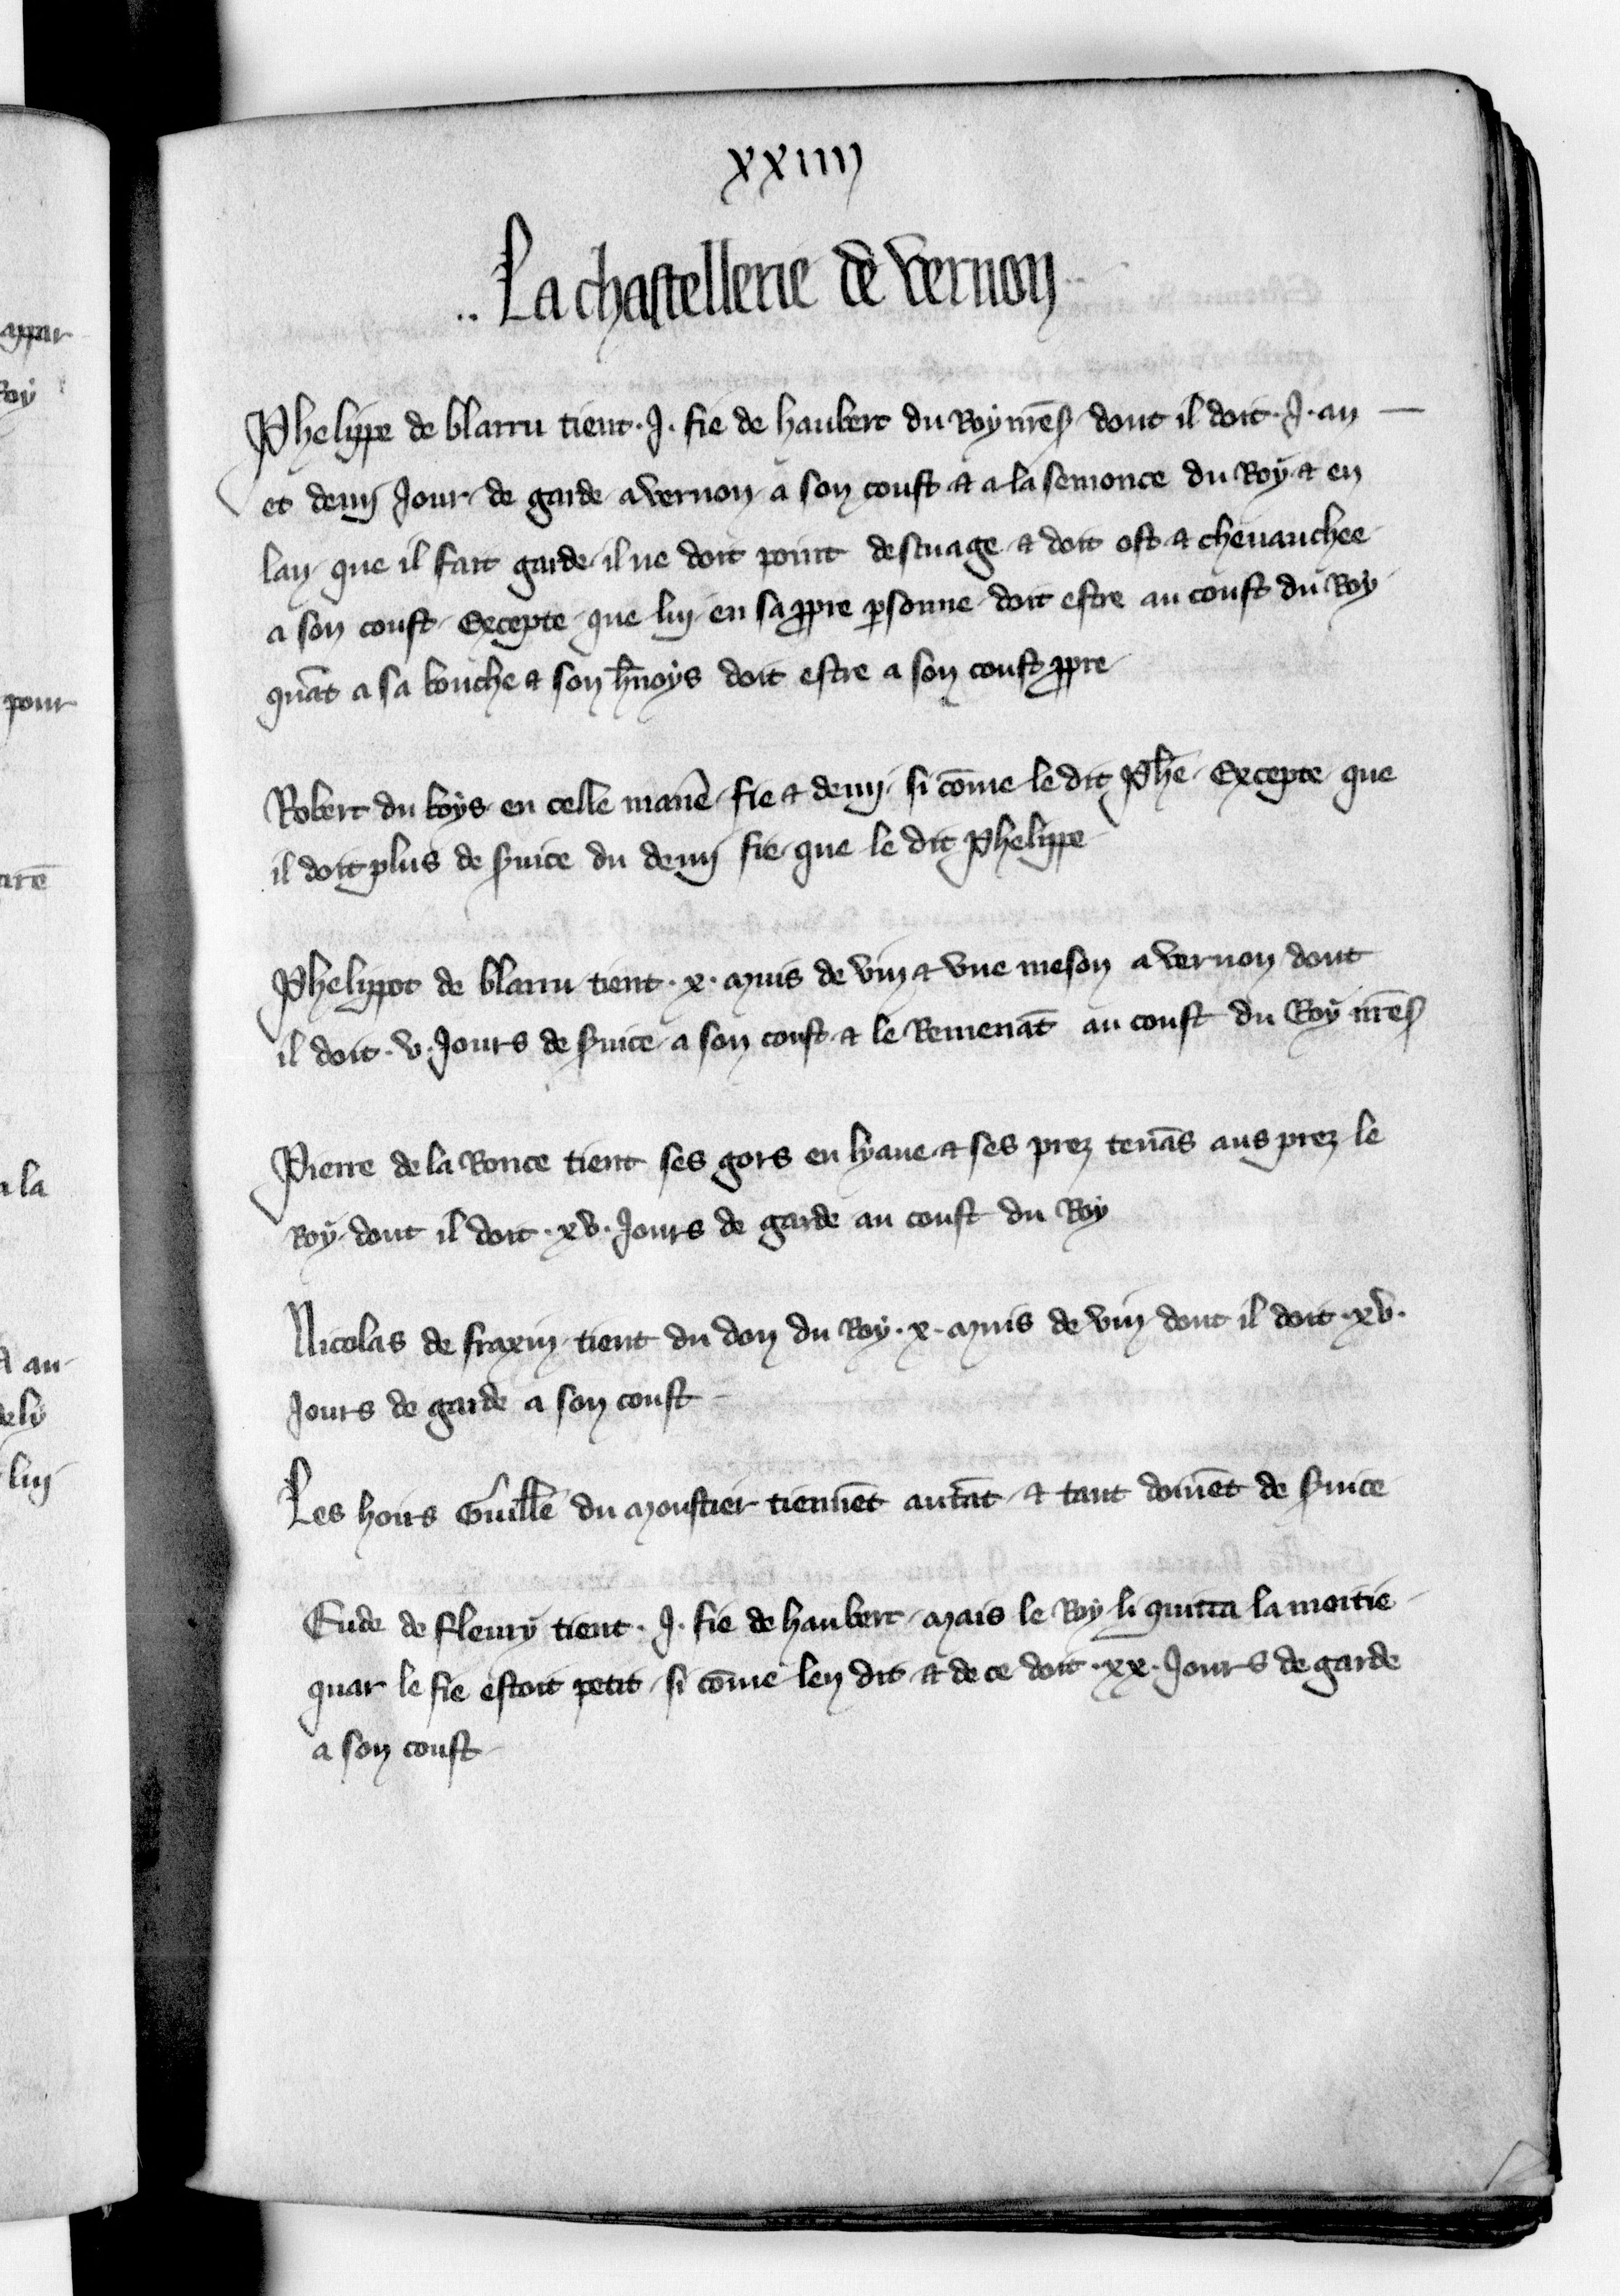 xxiiij
La chastellerie de vernon
Phelippe de blarru tient .J. fie de haubert du Roy nr̄e s̄ dont il doit .J. an
et demj Jour de garde a vernon a son coust & a la semonce du Roy & en
lan que il fait garde il ne doit point descuage & doit ost & cheuauchee
a son coust Excepte que luj en sa ꝓpre ꝑsonne doit estre au coust du Roy
qūat a sa bouche & son h̄noys doit estre a son coust ꝓpre
Robert du boys en celle manīe fie & demj si cōme le dit Phē Excepte que
il doit plus de s̄uice du demj fie que le dit Phelippe
Phelippot de blarru tient .x. muis de vin & vne meson a vernon dont
il doit .v. Jours de s̄uice a son coust & le Remenāt au coust du Roy nr̄e s̄
Pierre de la Ronce tient ses gors en lyaue & ses prez tenās aus prez le
Roy dont il doit .xv. Jours de garde au coust du Roy
Nicolas de fraxin tient du don du Roy .x. muis de vin dont il doit .xv.
Jours de garde a son coust
Les hoirs Guill̄e du moustier tiennēt autāt & tant doiuēt de s̄uice
Eude de fleury tient .J. fie de haubert mais le Roy li quitta la moitie
quar le fie estoit petit si cōme len dit & de ce doit .xx. Jours de garde
a son coust
appar
Roy
pour
a la
au
luj